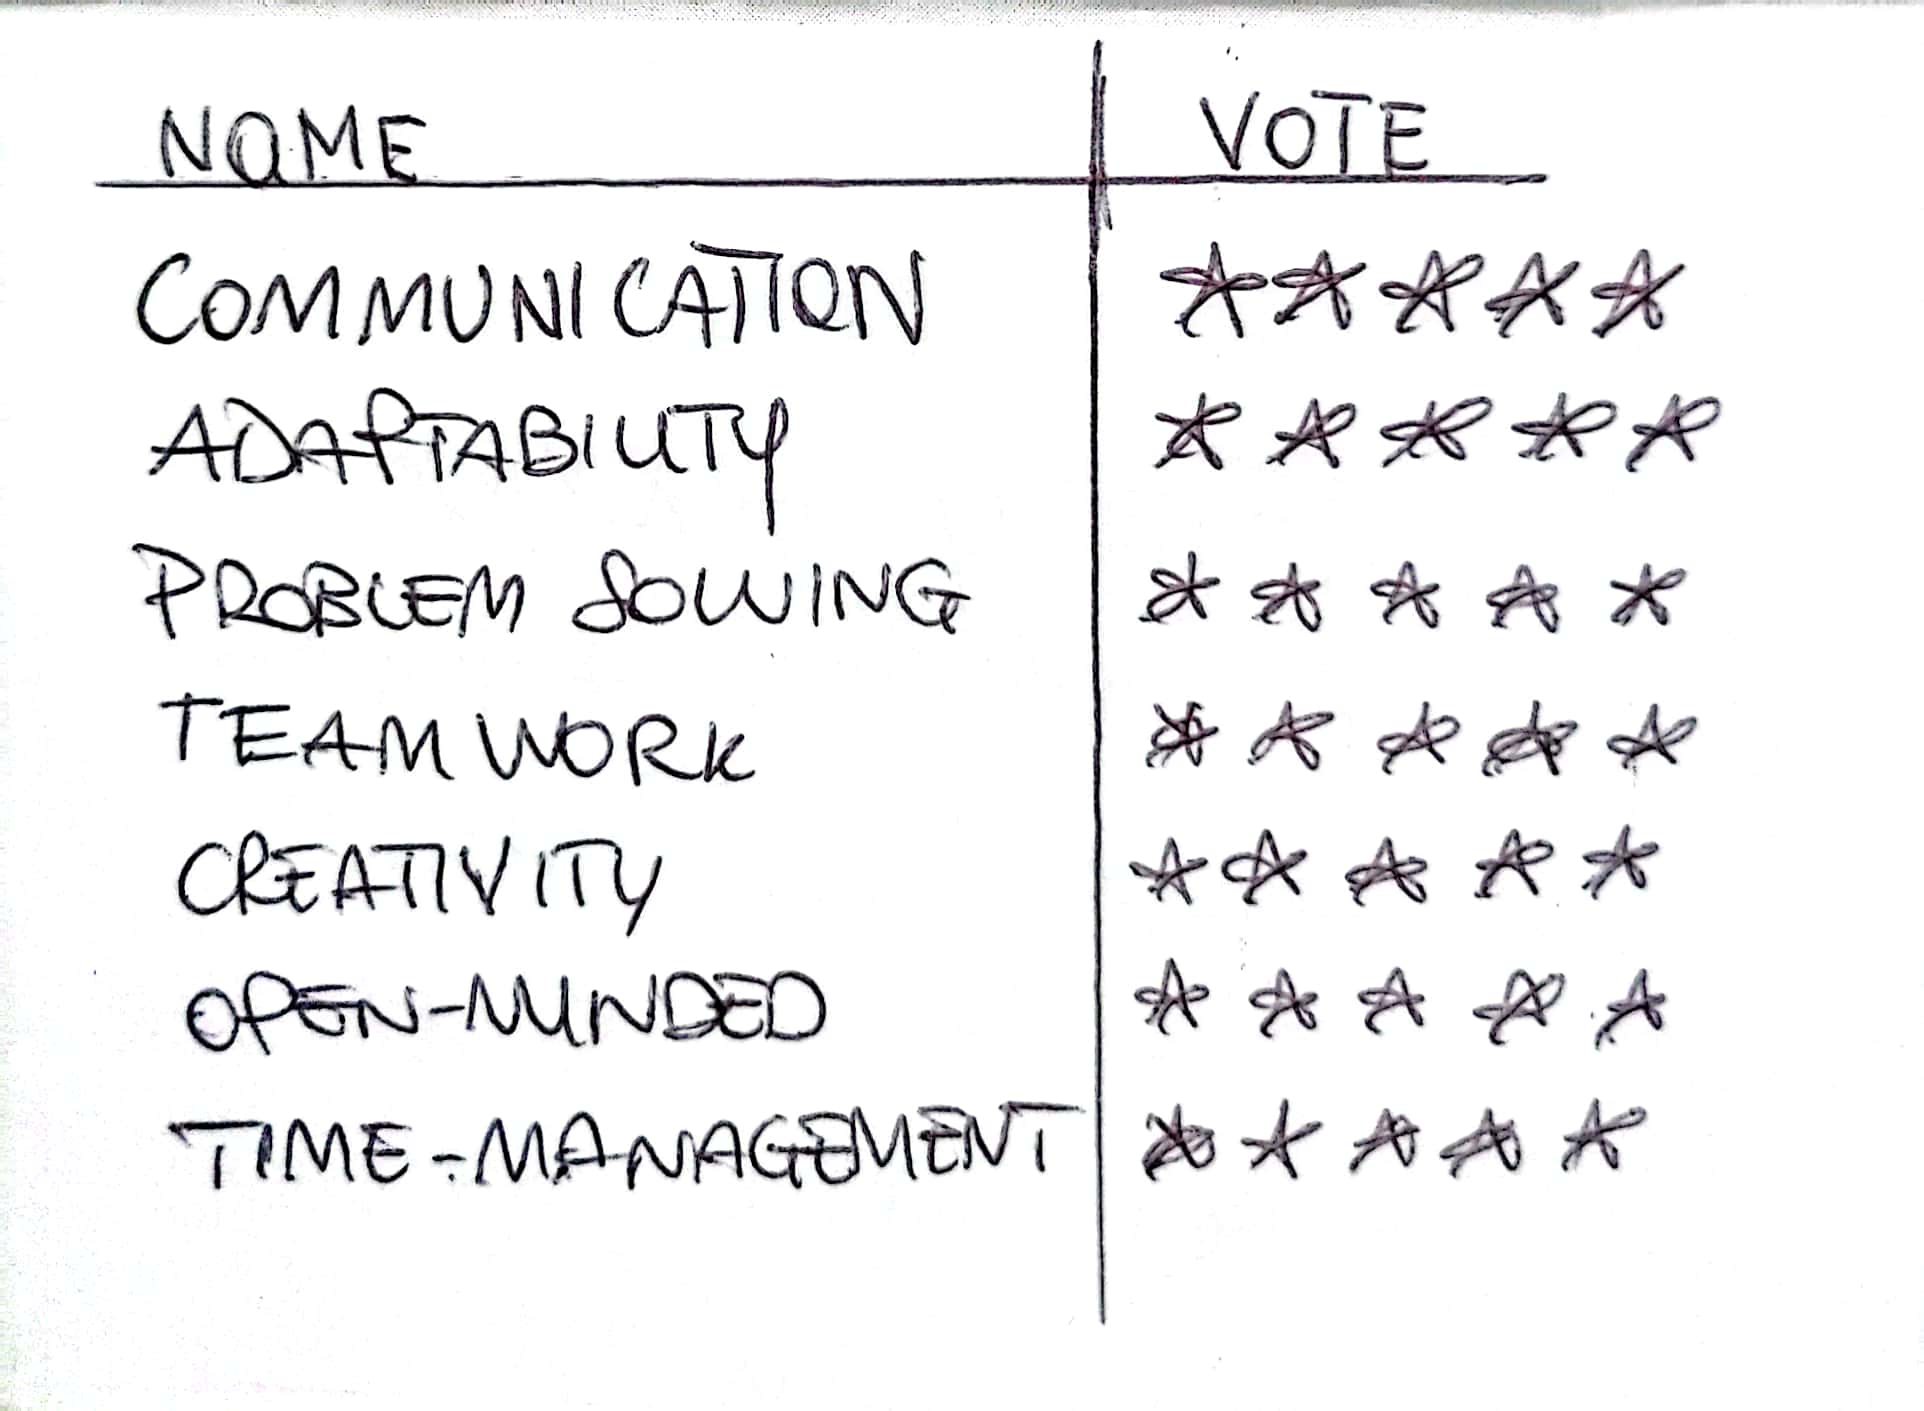 NAME VOTE
COMMUNICATION ★★★★★
ADAPTABILITY ★★★★★
PROBLEM SOLVING ★★★★★
TEAM WORK ★★★★★
CREATIVITY ★★★★★
OPEN-MINDED ★★★★★
TIME-MANAGEMENT ★★★★★